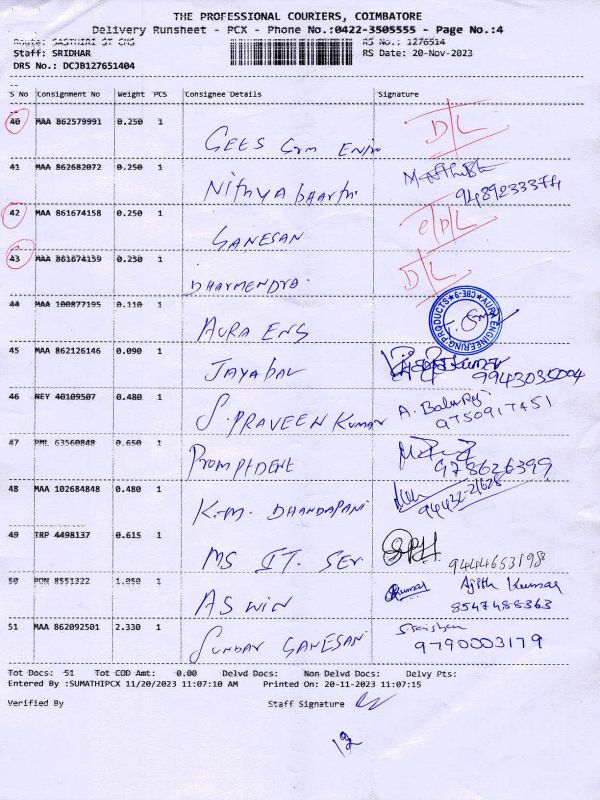 THE PROFESSIONAL COURIERS, COIMBATORE
Delivery Runsheet - PCX - Phone No.:0422-3505555 - Page No.:4
Route: SASTHIRI ST CMS RS No.: 1276514
Staff: SRIDHAR RS Date: 20-Nov-2023
DRS No.: DCJB127651404
S No Consignment No Weight PCS Consignee Details Signature
40 MAA 862579991 0.250 1 GEES Gym D/L
41 MAA 862682072 0.250 1 Nithya bharthi
42 MAA 861674158 0.250 1 GANESAN
43 MAA 861674159 0.250 1 DHARMENDRA D/L
44 MAA 100877195 0.110 1 AURA ENG AURA ENGINEERING PRODUCTS CBE-9
45 MAA 862126146 0.090 1 JAYABAL 9943035004
46 NEY 40109507 0.480 1 S.PRAVEEN Kumar A. Balu
9750917451
47 PML 63560848 0.650 1 PROMPTDENT 978626399
48 MAA 102684848 0.480 1 K.M. DHANDAPANI 94432-21628
49 TRP 4498137 0.615 1 MS IT. SER 9444653198
50 PON 8551322 1.050 1 ASWIN Kumar Ajith Kumar
8547488363
51 MAA 862092501 2.330 1 SUNDAR GANESAN
9790003179
Tot Docs: 51 Tot COD Amt: 0.00 Delvd Docs: Non Delvd Docs: Delvy Pts:
Entered By :SUMATHIPCX 11/20/2023 11:07:10 AM Printed On: 20-11-2023 11:07:15
Verified By Staff Signature